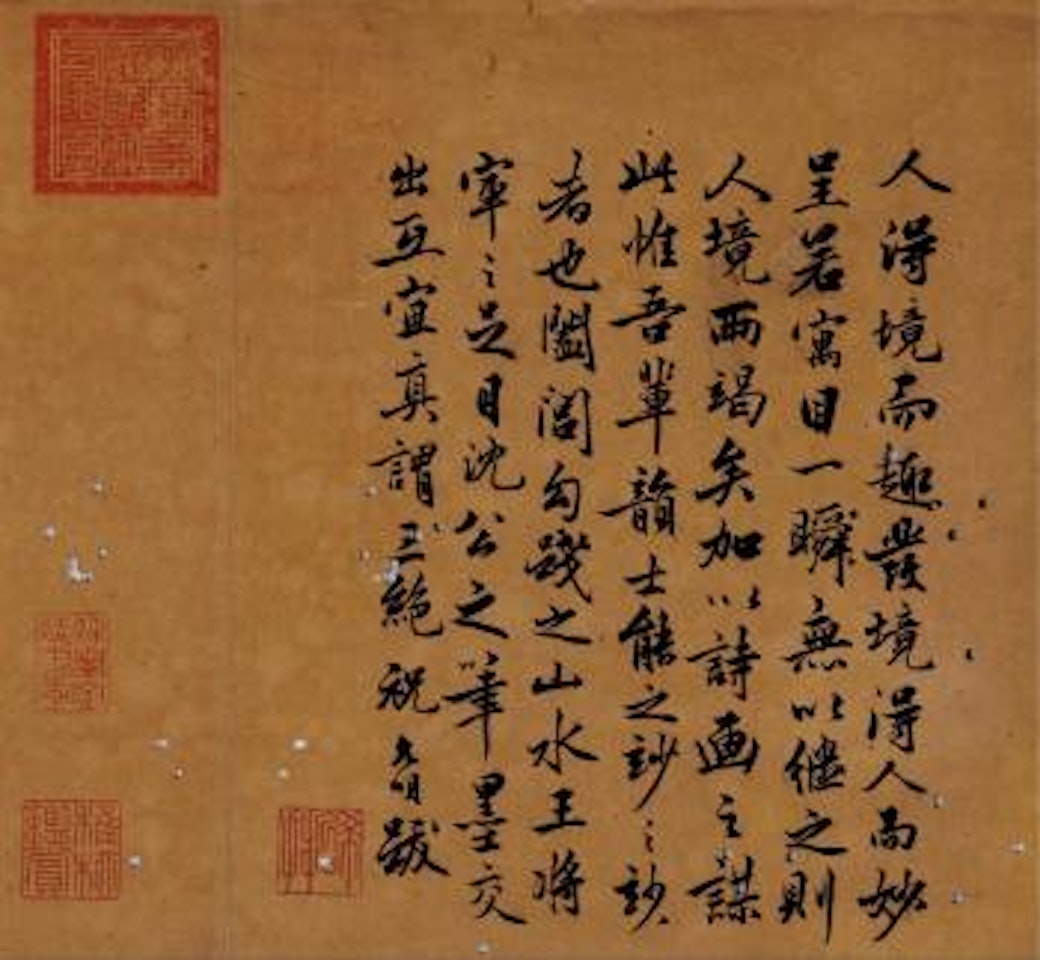 人得境而趣發境得人而妙
呈若寓目一瞬無以繼之則
人境兩竭矣加以詩画之謀
此惟吾輩韻士能之玅之玅
者也闔閭勾踐之山水王將
軍之足目沈公之筆墨交
出互宜真謂三絶祝允明跋